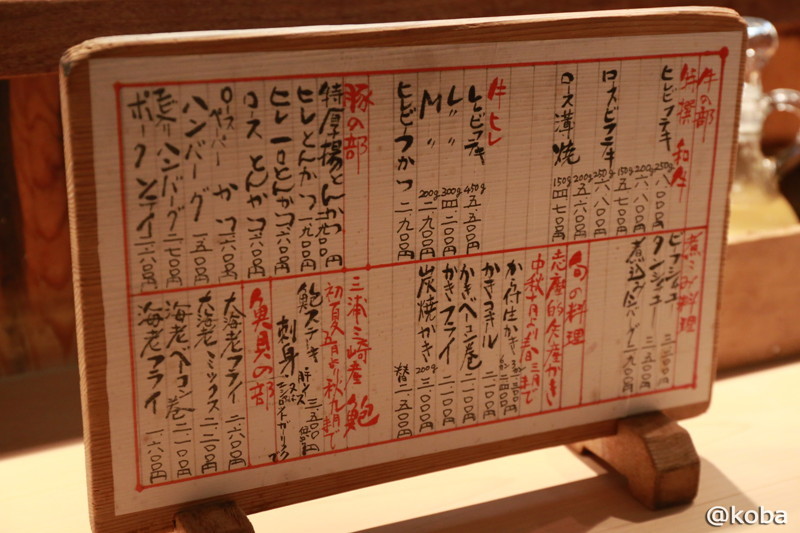 牛の部
特撰 和牛
ヒレビフテキ
250g 八、八〇〇円
ロースビフテキ
150g 五、七〇〇円
250g 八、八〇〇円
ロース溝焼
150g 四、七〇〇円
200g 五、六〇〇円
牛ヒレ
ヒレビフテキ 450g 五、五〇〇円
L〃〃 300g 四、二〇〇円
M〃〃 200g 二、九〇〇円
ヒレビーフかつ 二、九〇〇円
豚の部
特厚揚とんかつ
ヒレとんかつ 一、九〇〇円
ヒレ一口とんかつ 一、六〇〇円
ロースとんかつ 一、六〇〇円
ロースペーパーかつ 一、六〇〇円
ハンバーグ 一、五〇〇円
煮込ハンバーグ 一、七〇〇円
ポークソテイ 一、六〇〇円
煮こみ料理
ビーフシチュー
タンシチュー 二、五〇〇円
煮込ハンバーグ 一、七〇〇円
旬の料理
志摩的矢産かき
中秋十月より春三月まで
から付生かき
かきフライ 二、一〇〇円
かきベーコン巻 二、一〇〇円
炭焼かき 200g 三、〇〇〇円
二、五〇〇円
三浦三崎産 鮑
初夏五月より秋九月まで
鮑ステーキ 三、五〇〇円
刺身
魚貝の部
大海老フライ 二、六〇〇円
大海老ミックス 二、二〇〇円
海老ベーコン巻 二、一〇〇円
海老フライ 一、六〇〇円
@koba